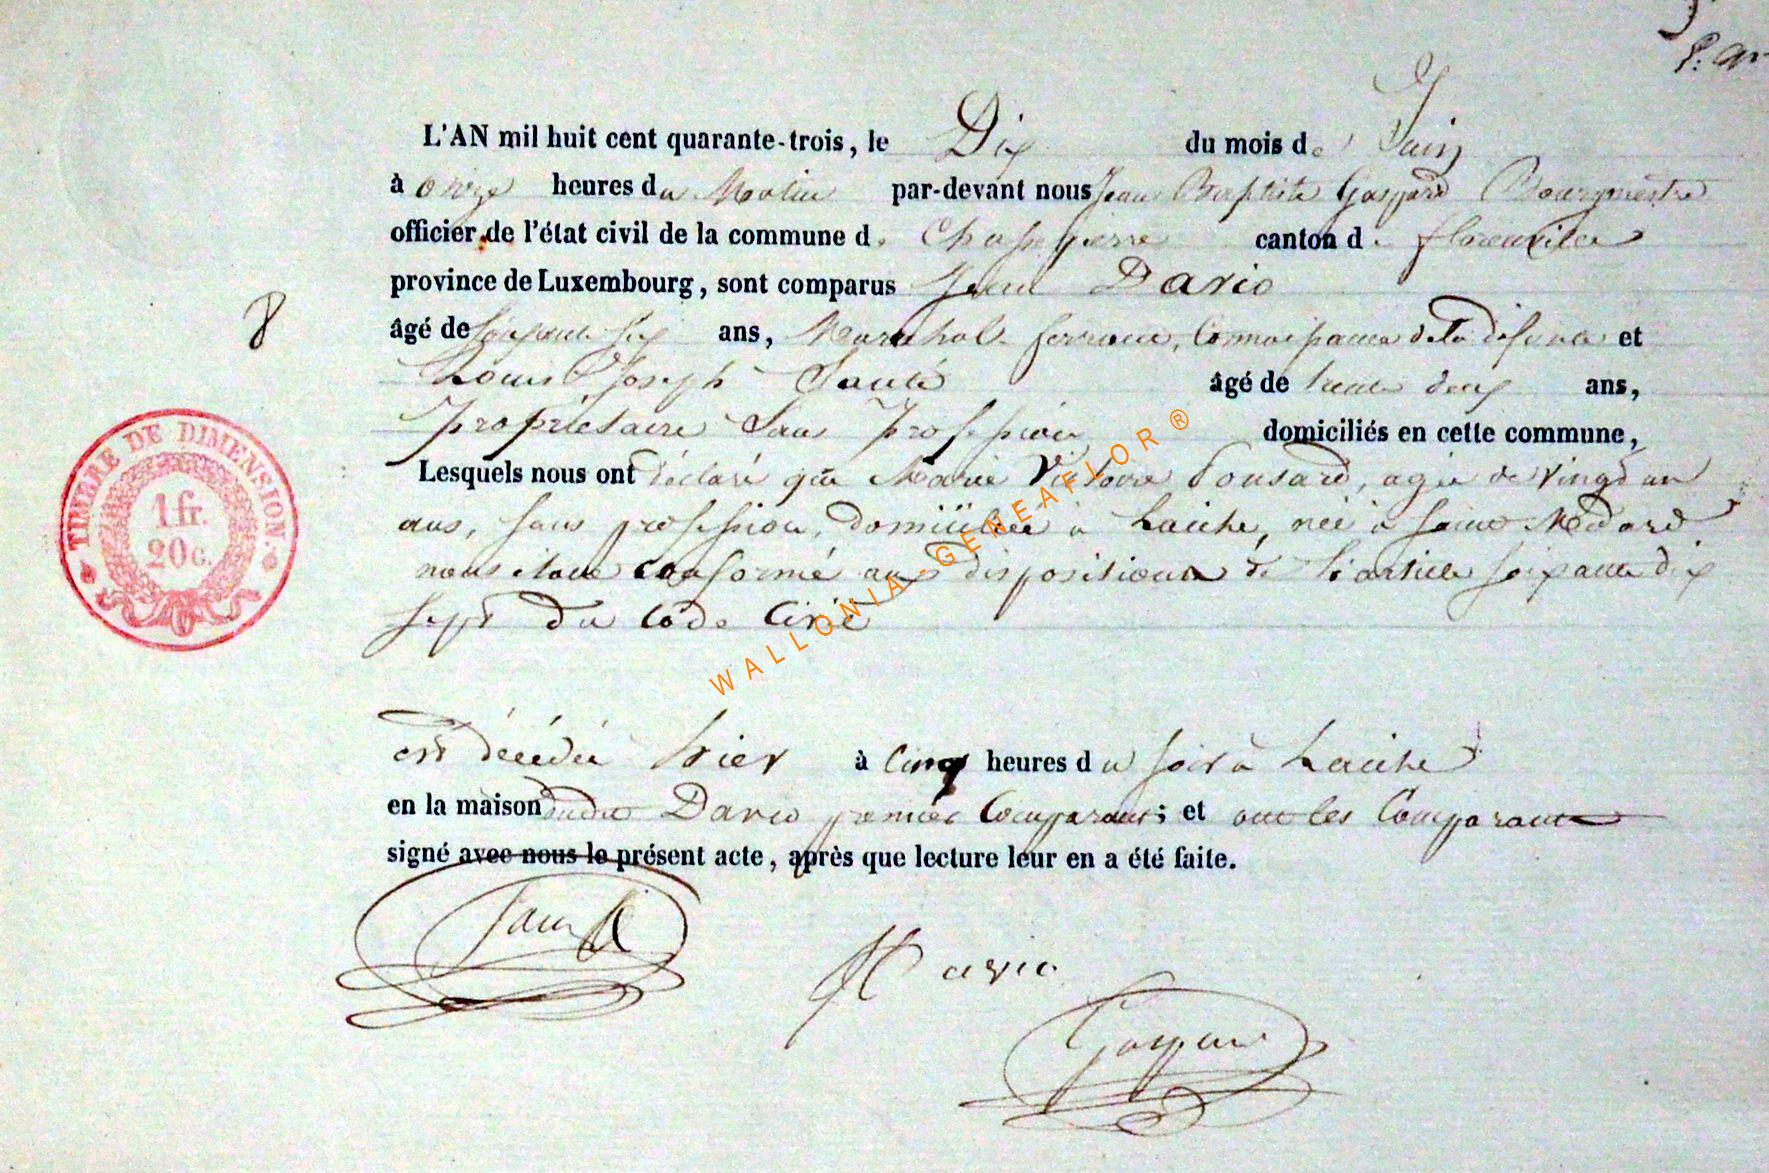 8
TIMBRE DE DIMENSION.
1 fr.
20 c.
L'AN mil huit cent quarante-trois, le Dix du mois de Juin
à onze heures du Matin par-devant nous Jean Baptiste Gaspard Bourgmestre
officier de l'état civil de la commune d. Chassepierre canton d. florenville
province de Luxembourg, sont comparus Jean Dario
âgé de soixante six ans, Marechal ferrant, Connaissance de la défunte et
Louis Joseph Santé âgé de trente deux ans,
propriétaire Sans Profession domiciliés en cette commune,
Lesquels nous ont déclaré que Marie Victoire Ponsard, agée de vingt un
ans, sans profession, domiciliée à Laiche, née à saint Médard
nous étant conformé aux dispositions de l'article soixante dix
sept du Code Civil
est décédée hier à Cinq heures du soir à Laiche
en la maison dudit Dario premier Comparant; et ont les Comparants
signé avec nous le présent acte, après que lecture leur en a été faite.
Dario
Gaspard
WALLONIA-GENEAFLOR ®